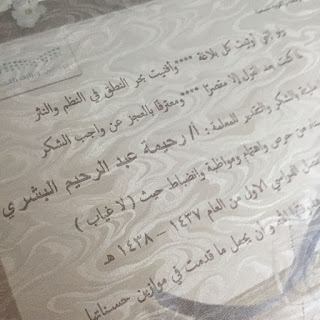 ولو أنني أوتيت كل بلاغة ***** وأفنيت بحر النطق في النظم والنثر
لما كنت بعد القول إلا مقصراً **** ومعترفا بالعجز عن واجب الشكر
بالشكر والتقدير للمعلمة : أ/ رحيمة عبد الرحيم البشري
من حرص واهتمام ومواظبة وانضباط حيث ( لا غياب )
الدراسي الأول من العام ١٤٣٧ – ١٤٣٨ هـ
أن يجعل ما قدمت في موازين حسناتها